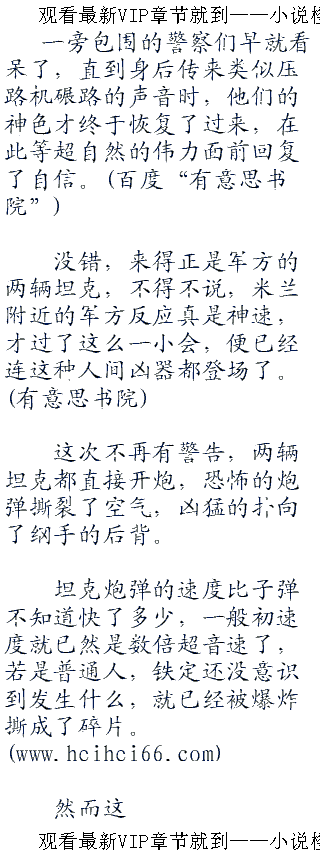 观看最新VIP章节就到——小说
一旁包围的警察们早就看
呆了，直到身后传来类似压
路机碾路的声音时，他们的
神色才终于恢复了过来，在
此等超自然的伟力面前回复
了自信。(百度“有意思书
院”)
没错，来得正是军方的
两辆坦克，不得不说，米兰
附近的军方反应真是神速，
才过了这么一小会，便已经
连这种人间凶器都登场了。
(有意思书院)
这次不再有警告，两辆
坦克都直接开炮，恐怖的炮
弹撕裂了空气，凶猛的扑向
了纲手的后背。
坦克炮弹的速度比子弹
不知道快了多少，一般初速
度就已然是数倍超音速了，
若是普通人，铁定还没意识
到发生什么，就已经被爆炸
撕成了碎片。
(www.hcihci66.com)
然而这
观看最新VIP章节就到——小说